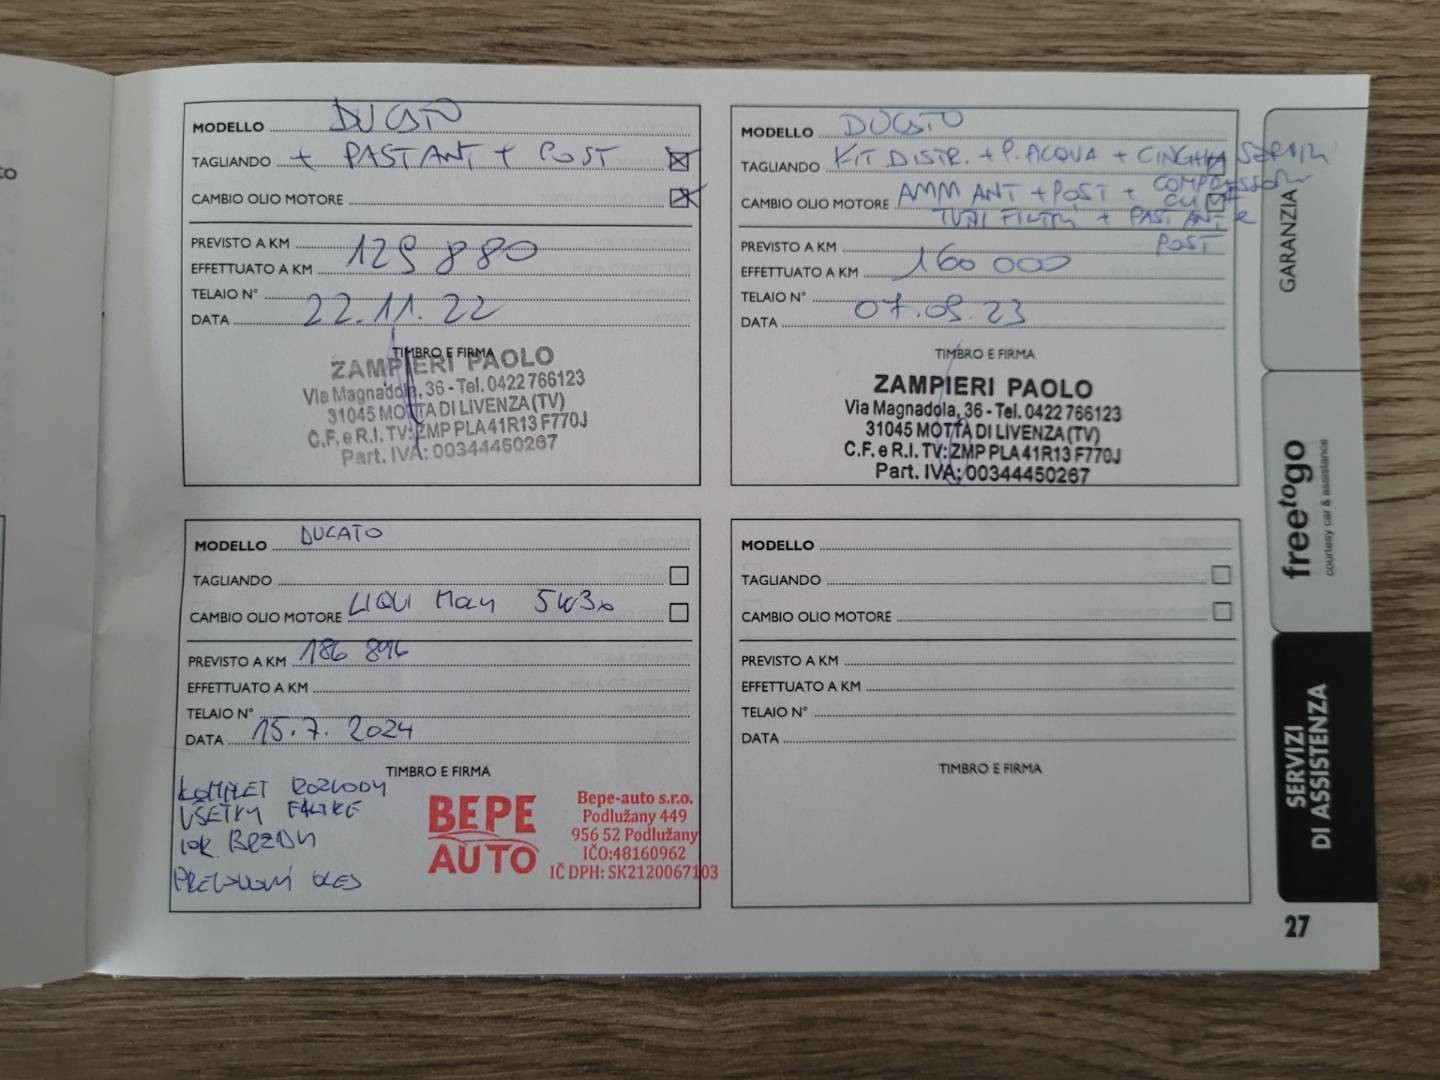 to
MODELLO DUCATO
TAGLIANDO + PAST ANT + POST
CAMBIO OLIO MOTORE
PREVISTO A KM
EFFETTUATO A KM 129 880
TELAIO N°
DATA 22.11.22
TIMBRO E FIRMA
ZAMPIERI PAOLO
Via Magnadola, 36 - Tel. 0422 766123
31045 MOTTA DI LIVENZA (TV)
C.F. e R.I. TV: ZMP PLA 41R13 F770J
Part. IVA: 00344450267
MODELLO DUCATO
TAGLIANDO KIT DISTR. + P. ACQUA + CINGHIA SERVIZI
COMPRESSORE
CAMBIO OLIO MOTORE AMM ANT + POST +
TUTTI FILTRI + PAST ANT e
POST
PREVISTO A KM
EFFETTUATO A KM 160 000
TELAIO N°
DATA 07.09.23
TIMBRO E FIRMA
ZAMPIERI PAOLO
Via Magnadola, 36 - Tel. 0422 766123
31045 MOTTA DI LIVENZA (TV)
C.F. e R.I. TV: ZMP PLA 41R13 F770J
Part. IVA: 00344450267
MODELLO DUCATO
TAGLIANDO
CAMBIO OLIO MOTORE LIQUI Moly 5W30
PREVISTO A KM 186 896
EFFETTUATO A KM
TELAIO N°
DATA 15.7.2024
TIMBRO E FIRMA
KOMPLET ROZVODY
VŠETKY FILTRE
BRZDY
PREVODOVÝ OLEJ
BEPE
AUTO
Bepe-auto s.r.o.
Podlužany 449
956 52 Podlužany
IČO:48160962
IČ DPH: SK2120067103
MODELLO
TAGLIANDO
CAMBIO OLIO MOTORE
PREVISTO A KM
EFFETTUATO A KM
TELAIO N°
DATA
TIMBRO E FIRMA
GARANZIA
freetogo
courtesy car & assistance
SERVIZI
DI ASSISTENZA
27